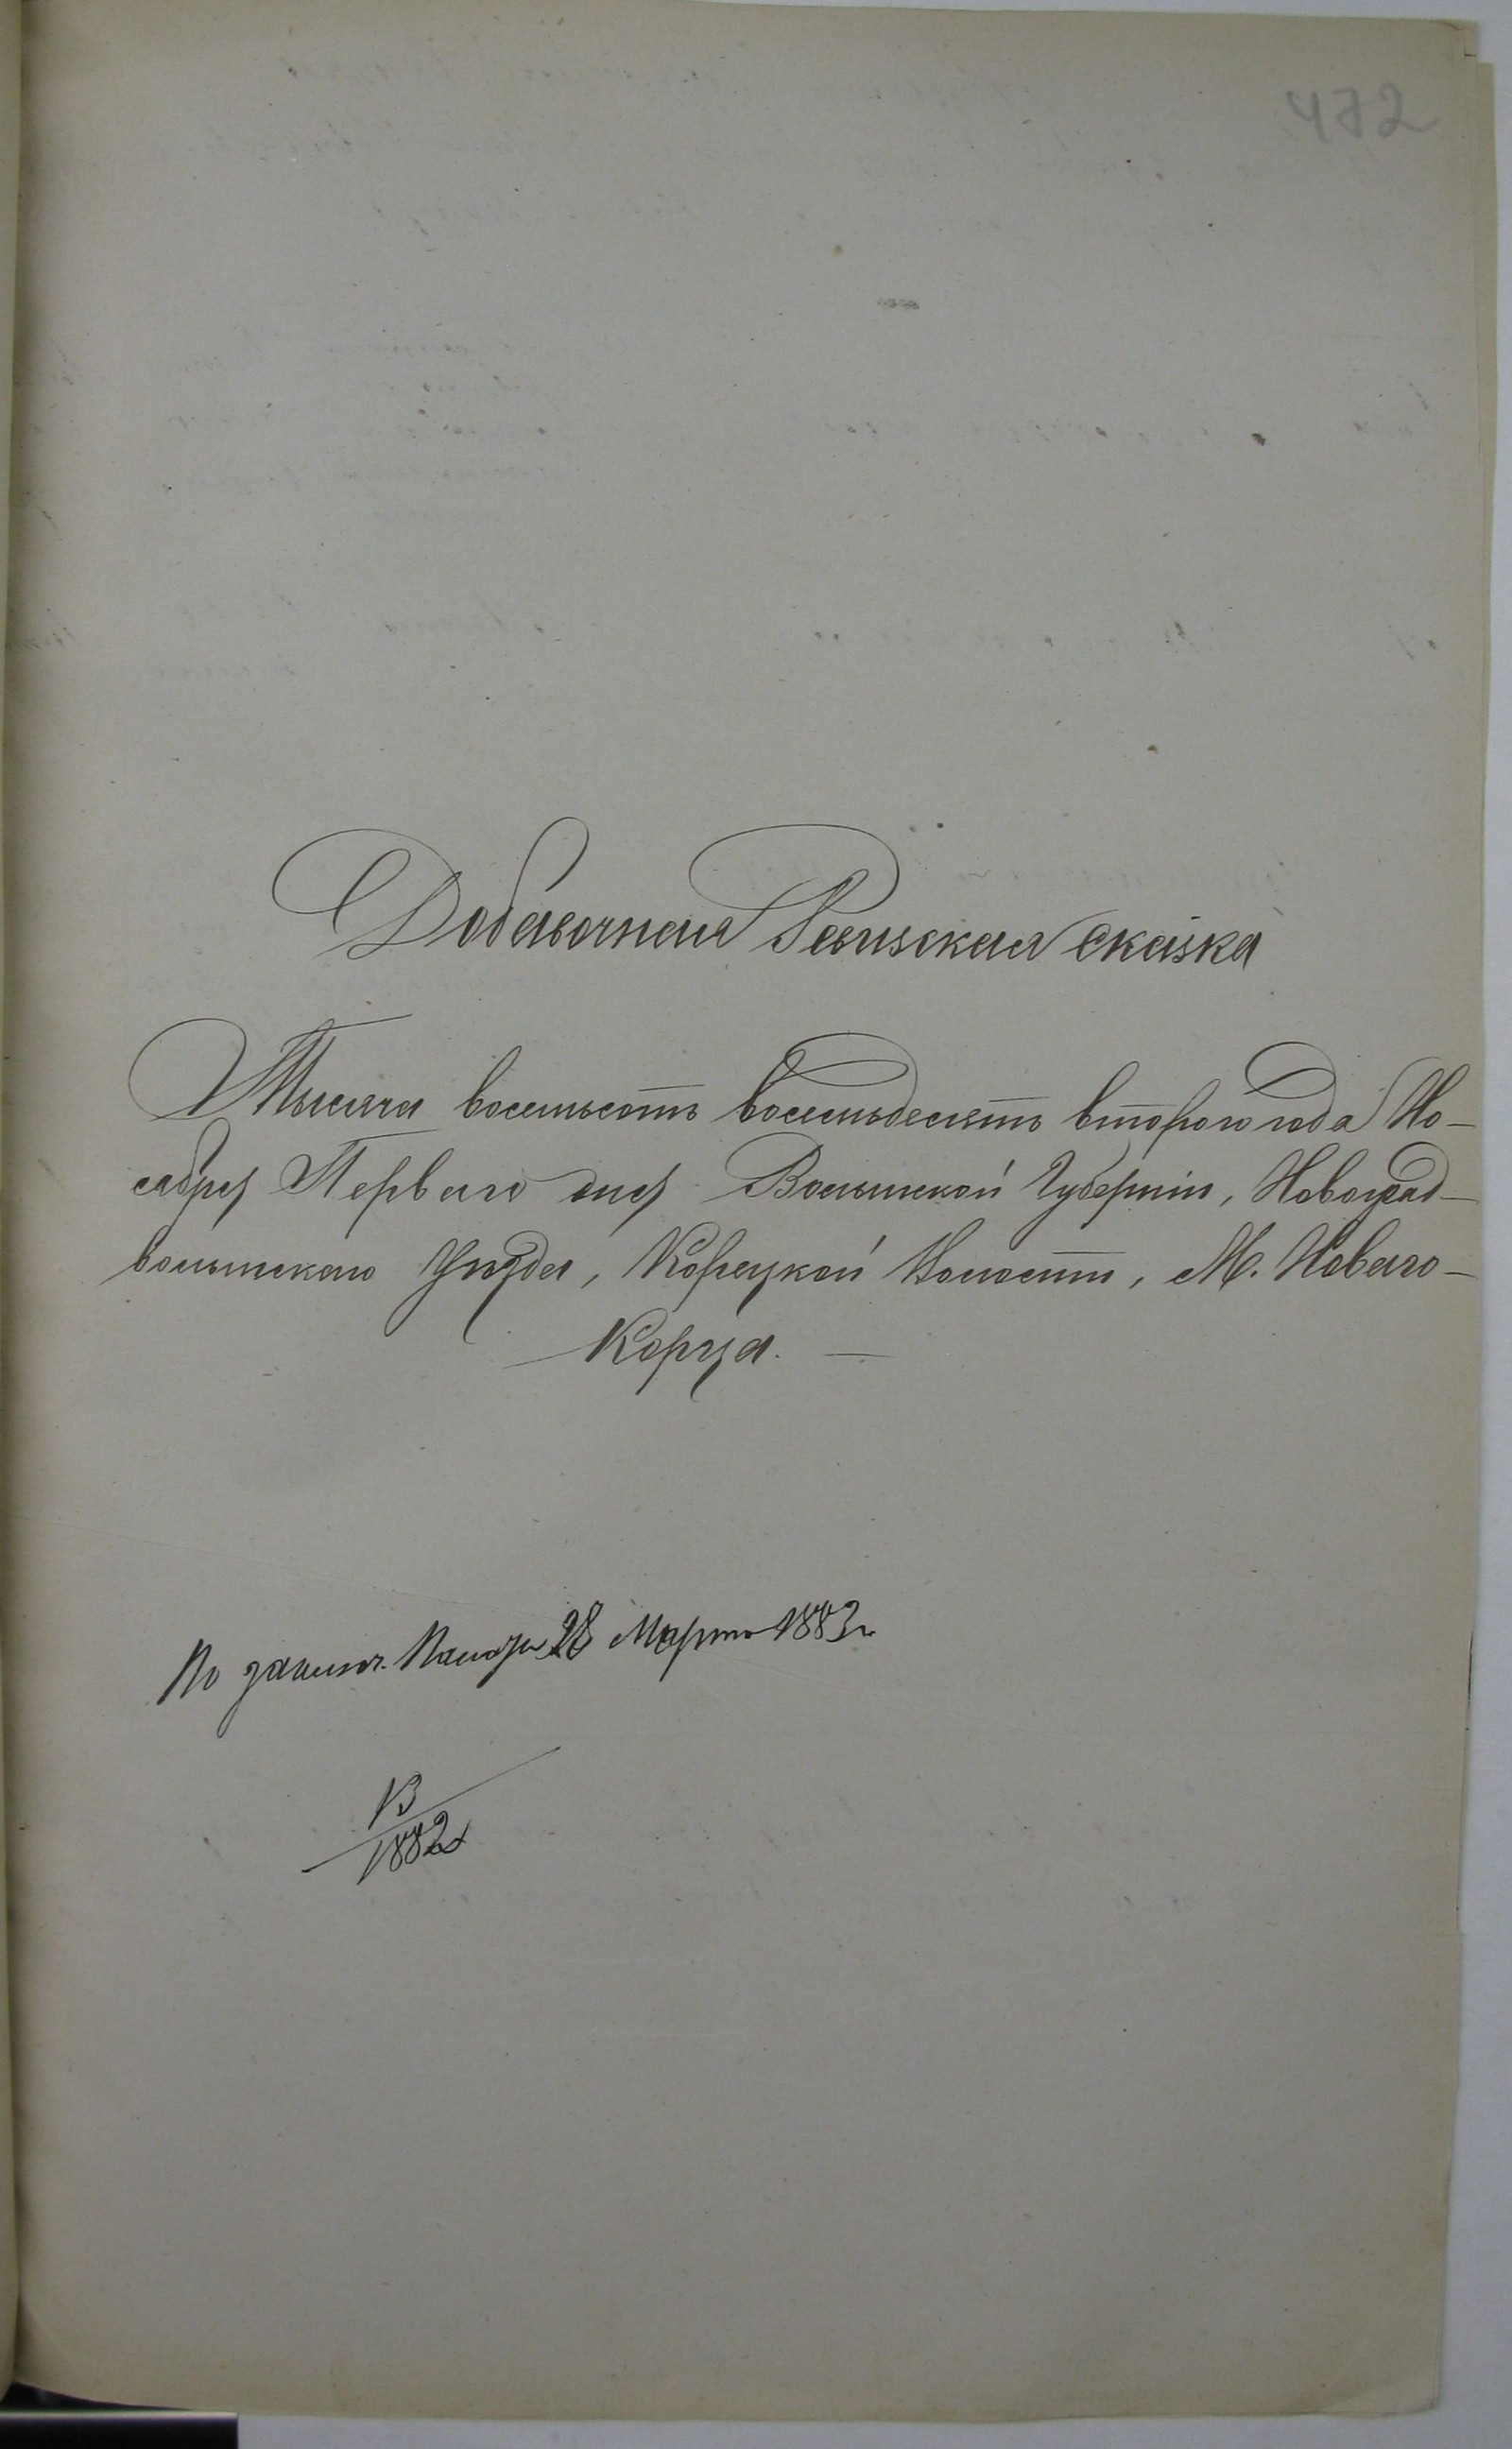 472
Добавочная Ревизская сказка
Тысяча восемьсотъ восемьдесятъ второго года Но-
ября Перваго дня Волынской Губерніи, Новоград-
волынскаго Уѣзда, Корецкой Волости, М. Новаго-
Корца. —
По заключ. Палаты 28 Марта 1883 г.
13
1882